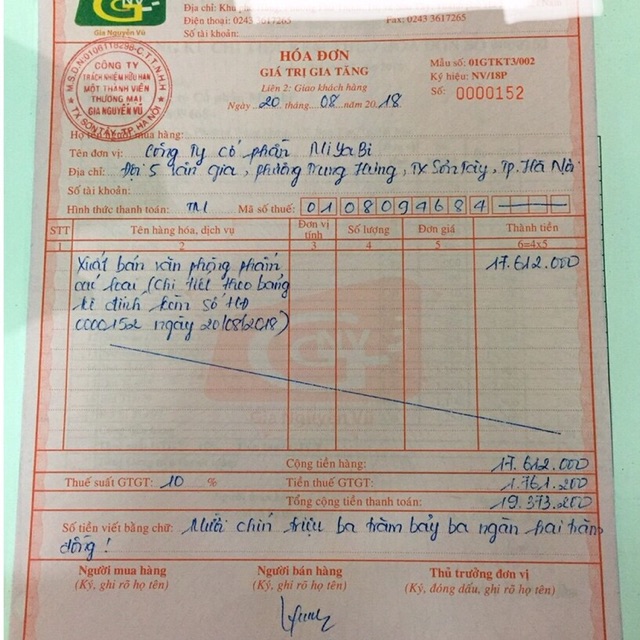 GNV
Gia Nguyễn Vũ
Địa chỉ: Khu
Điện thoại: 0243 3617265 Fax: 0243 3617265
Số tài khoản:
HÓA ĐƠN
GIÁ TRỊ GIA TĂNG
Liên 2: Giao khách hàng
Ngày 20 tháng 08 năm 2018
Mẫu số: 01GTKT3/002
Ký hiệu: NV/18P
Số: 0000152
CÔNG TY
TRÁCH NHIỆM HỮU HẠN
MỘT THÀNH VIÊN
THƯƠNG MẠI
GIA NGUYỄN VŨ
TX SƠN TÂY - TP. HÀ NỘI
Họ tên người mua hàng:
Tên đơn vị: Công Ty cổ phần MiYaBi
Địa chỉ: Đội 5 vân gia, phường Trung Hưng, TX Sơn Tây, Tp. Hà Nội
Số tài khoản:
Hình thức thanh toán: TM Mã số thuế: 0108094684
STT Tên hàng hóa, dịch vụ Đơn vị tính Số lượng Đơn giá Thành tiền
1 2 3 4 5 6=4x5
Xuất bán văn phòng phẩm 17.612.000
các loại (Chi tiết theo bảng
kê đính kèm số HĐ
0000152 ngày 20/08/2018)
GNV
Gia Nguyễn Vũ
Cộng tiền hàng: 17.612.000
Thuế suất GTGT: 10 % Tiền thuế GTGT: 1.761.200
Tổng cộng tiền thanh toán: 19.373.200
Số tiền viết bằng chữ: Mười chín triệu ba trăm bảy ba ngàn hai trăm
đồng!
Người mua hàng Người bán hàng Thủ trưởng đơn vị
(Ký, ghi rõ họ tên) (Ký, ghi rõ họ tên) (Ký, đóng dấu, ghi rõ họ tên)